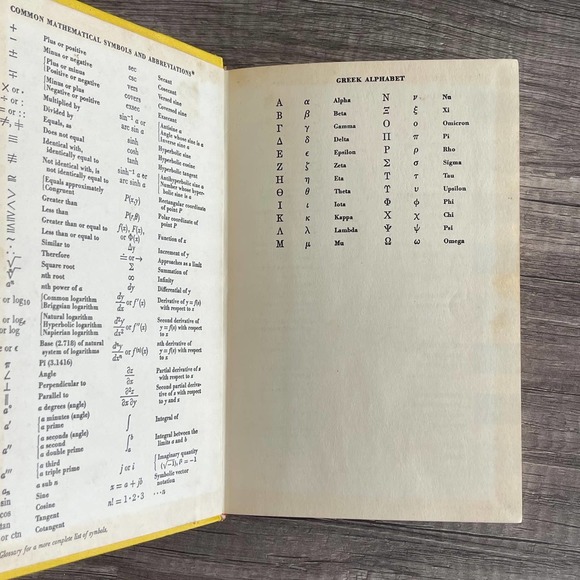 COMMON MATHEMATICAL SYMBOLS AND ABBREVIATIONS*
+ Plus or positive
− Minus or negative
± Plus or minus
Positive or negative
∓ Minus or plus
Negative or positive
× or · Multiplied by
÷ or : Divided by
= or :: Equals, as
≠, ≠ Does not equal
≡ Identical with,
identically equal to
≢ Not identical with, is
not identically equal to
Equals approximately
Congruent
> Greater than
< Less than
≥ Greater than or equal to
≤ Less than or equal to
~ Similar to
∴ Therefore
√ Square root
nth root
nth power of a
or log10 Common logarithm
Briggsian logarithm
or loge Natural logarithm
or log Hyperbolic logarithm
Napierian logarithm
e or ϵ Base (2.718) of natural
system of logarithms
π Pi (3.1416)
∠ Angle
⊥ Perpendicular to
∥ Parallel to
a° a degrees (angle)
a′ a minutes (angle)
a prime
a″ a seconds (angle)
a second
a double prime
a‴ a third
a triple prime
an a sub n
sin Sine
cos Cosine
tan Tangent
or ctn Cotangent
Glossary for a more complete list of symbols.
sec Secant
csc Cosecant
vers Versed sine
covers Coversed sine
exsec Exsecant
sin⁻¹ a or
arc sin a Antisine a
Angle whose sine is a
Inverse sine a
sinh Hyperbolic sine
cosh Hyperbolic cosine
tanh Hyperbolic tangent
sinh⁻¹ a or
arc sinh a Antihyperbolic sine a
Number whose hyper-
bolic sine is a
P(x,y) Rectangular coordinate
of point P
P(r,θ) Polar coordinate of
point P
f(x), F(x),
or Φ(x) Function of x
Δy Increment of y
≐ or → Approaches as a limit
Σ Summation of
∞ Infinity
dy Differential of y
dy/dx or f′(x) Derivative of y = f(x)
with respect to x
d²y/dx² or f″(x) Second derivative of
y = f(x) with respect
to x
dⁿy/dxⁿ or f⁽ⁿ⁾(x) nth derivative of
y = f(x) with respect
to x
∂z/∂x Partial derivative of z
with respect to x
∂²z/∂x ∂y Second partial deriva-
tive of z with respect
to y and x
∫ Integral of
∫ b a Integral between the
limits a and b
j or i Imaginary quantity
(√−1), i² = −1
x = a + jb Symbolic vector
notation
n! = 1 · 2 · 3 · · · n
GREEK ALPHABET
Α α Alpha Ν ν Nu
Β β Beta Ξ ξ Xi
Γ γ Gamma Ο ο Omicron
Δ δ Delta Π π Pi
Ε ϵ Epsilon Ρ ρ Rho
Ζ ζ Zeta Σ σ Sigma
Η η Eta Τ τ Tau
Θ θ Theta Τ υ Upsilon
Ι ι Iota Φ ϕ Phi
Κ κ Kappa Χ χ Chi
Λ λ Lambda Ψ ψ Psi
Μ μ Mu Ω ω Omega